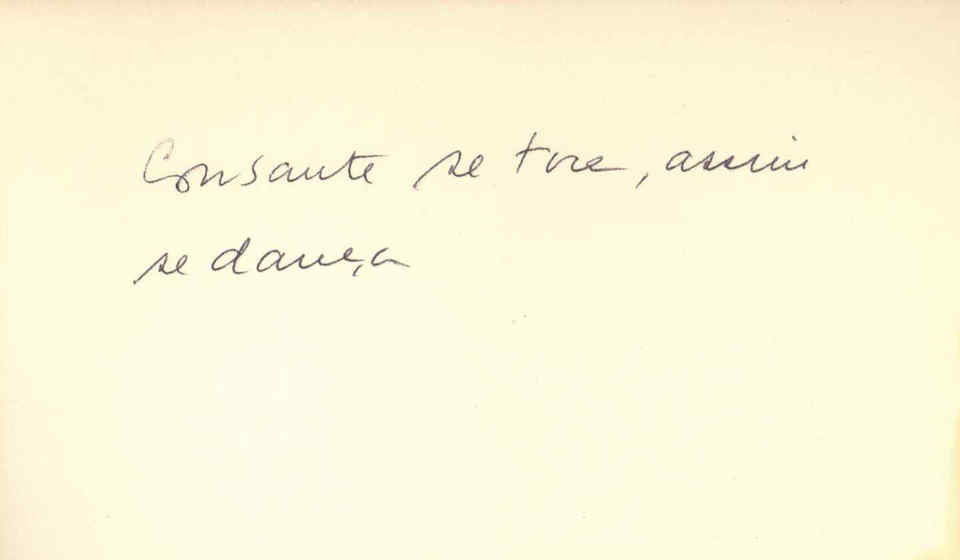 Consante se toca, assim
se dança